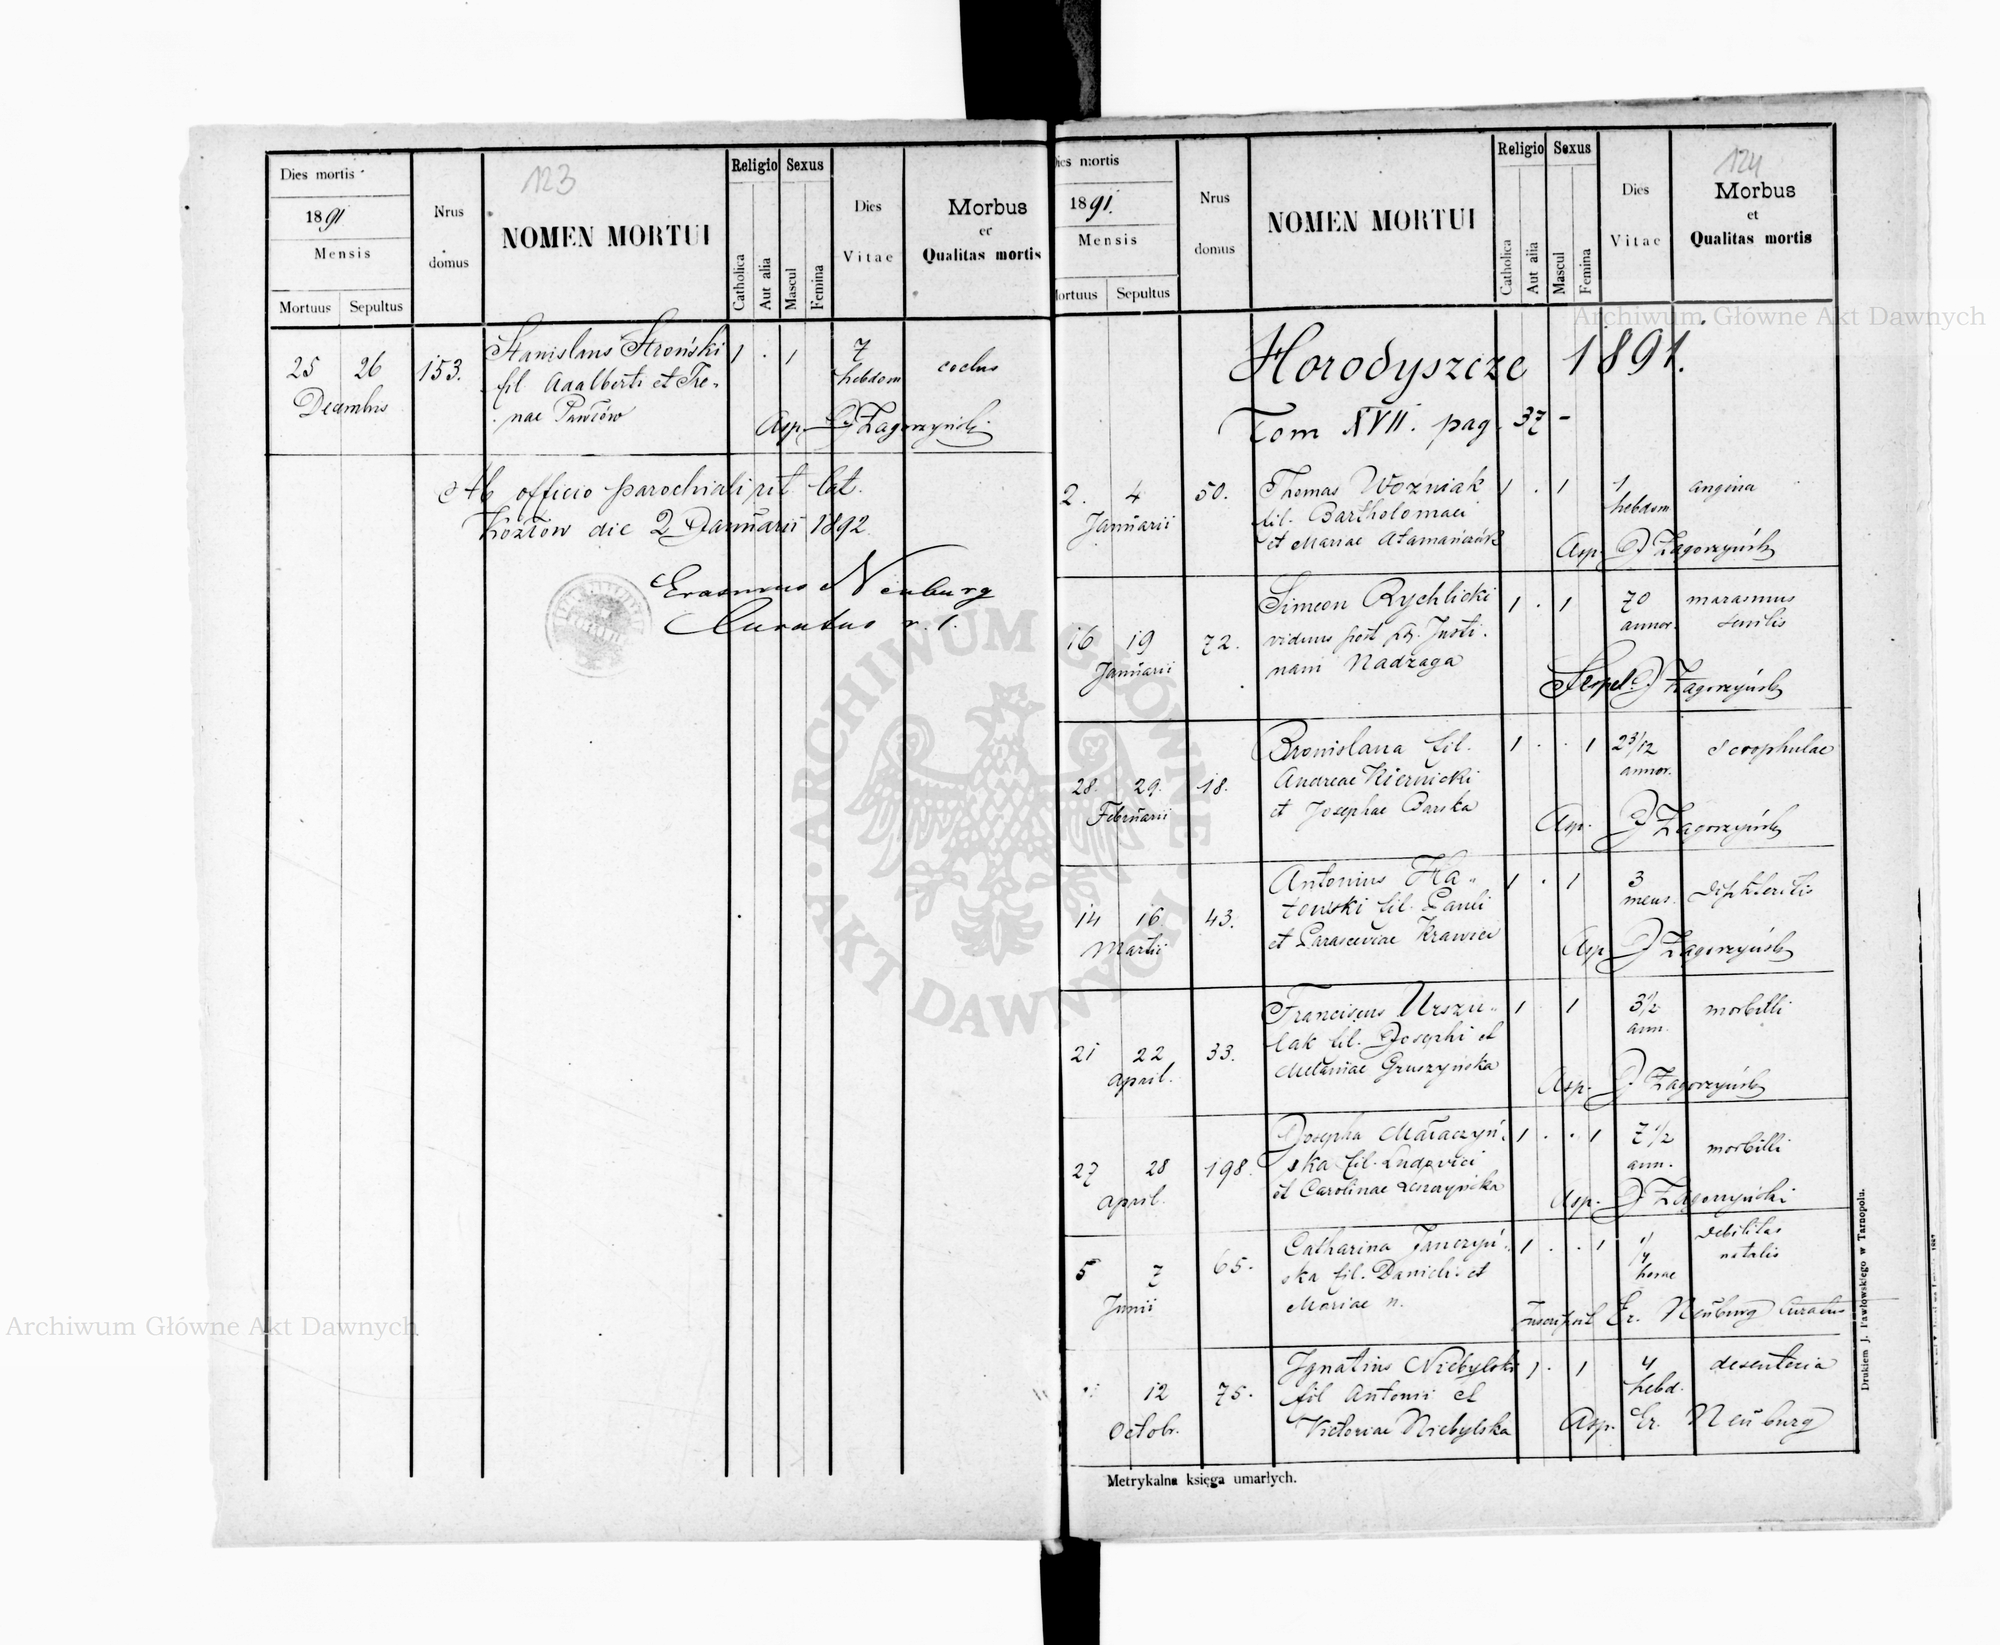 Dies mortis
1891
Mensis
Mortuus Sepultus
Nrus domus
123
NOMEN MORTUI
Religio
Catholica
Aut alia
Sexus
Mascul
Femina
Dies Vitae
Morbus
et
Qualitas mortis
25 26 153. Stanislaus Stroński 1 . 1 7
fil. Adalberti et Ire-
hebdom
Decembris
nae Pawłów
Asp. J Zagorzyński
Ab officio parochiali rit. lat.
Kozłow die 2 Januarii 1892
Erasmus Neuburg
Curatus r. l.
Dies mortis
1891.
Mensis
Mortuus Sepultus
Nrus domus
NOMEN MORTUI
Religio
Catholica
Aut alia
Sexus
Mascul
Femina
Dies Vitae
124
Morbus
et
Qualitas mortis
Horodyszcze 1891.
Tom XVII. pag. 37 -
2. 4 50. Thomas Woźniak 1 . 1 1 angina
Januarii fil. Bartholomaei hebdom
et Mariae Atamańczuk
Asp. J Zagorzyński
Simeon Rychlicki 1 . 1 70 marasmus
annor. senilis
16 19 72. viduus post Justi-
Januarii nam Nadzaga
J Zagorzyński
Bronislava fil. 1 . . 1 2 3/12 scrophulae
28. 29. 18. Andreae Kiernicki annor.
Februarii et Josephae Barska
Asp. J Zagorzyński
Antonius Ha- 1 . 1 3 diphteritis
14 16 43. towski fil. Pauli mens.
Martii et Parasceviae Krawiec
Asp J Zagorzyński
Franciscus Urszu- 1 . 1 3 1/2 morbilli
21 22 33. lak fil. Josephi et ann.
april. Melaniae Gruszyńska
Asp. J. Zagorzyński
Josepha Małaczyń- 1 . . 1 7 1/2 morbilli
27 28 198. ska fil. Ludovici ann.
april. et Carolinae Leszczyńska
Asp. J Zagorzyński
Catharina Janczyń- 1 . . 1 1/4 debilitas
5 7 65. ska fil. Danieli et horae natalis
Junii Mariae n.
Er. Neuburg Curatus
Ignatius Niebylski 1 . 1 4 desenteria
12 75. fil Antonii et hebd.
Octobr. Victoriae Niebylska
Asp. Er. Neuburg
Metrykalna księga umarłych.
Drukiem J. Pawłowskiego w Tarnopolu.
Archiwum Główne Akt Dawnych
Archiwum Główne Akt Dawnych
ARCHIWUM GŁÓWNE AKT DAWNYCH